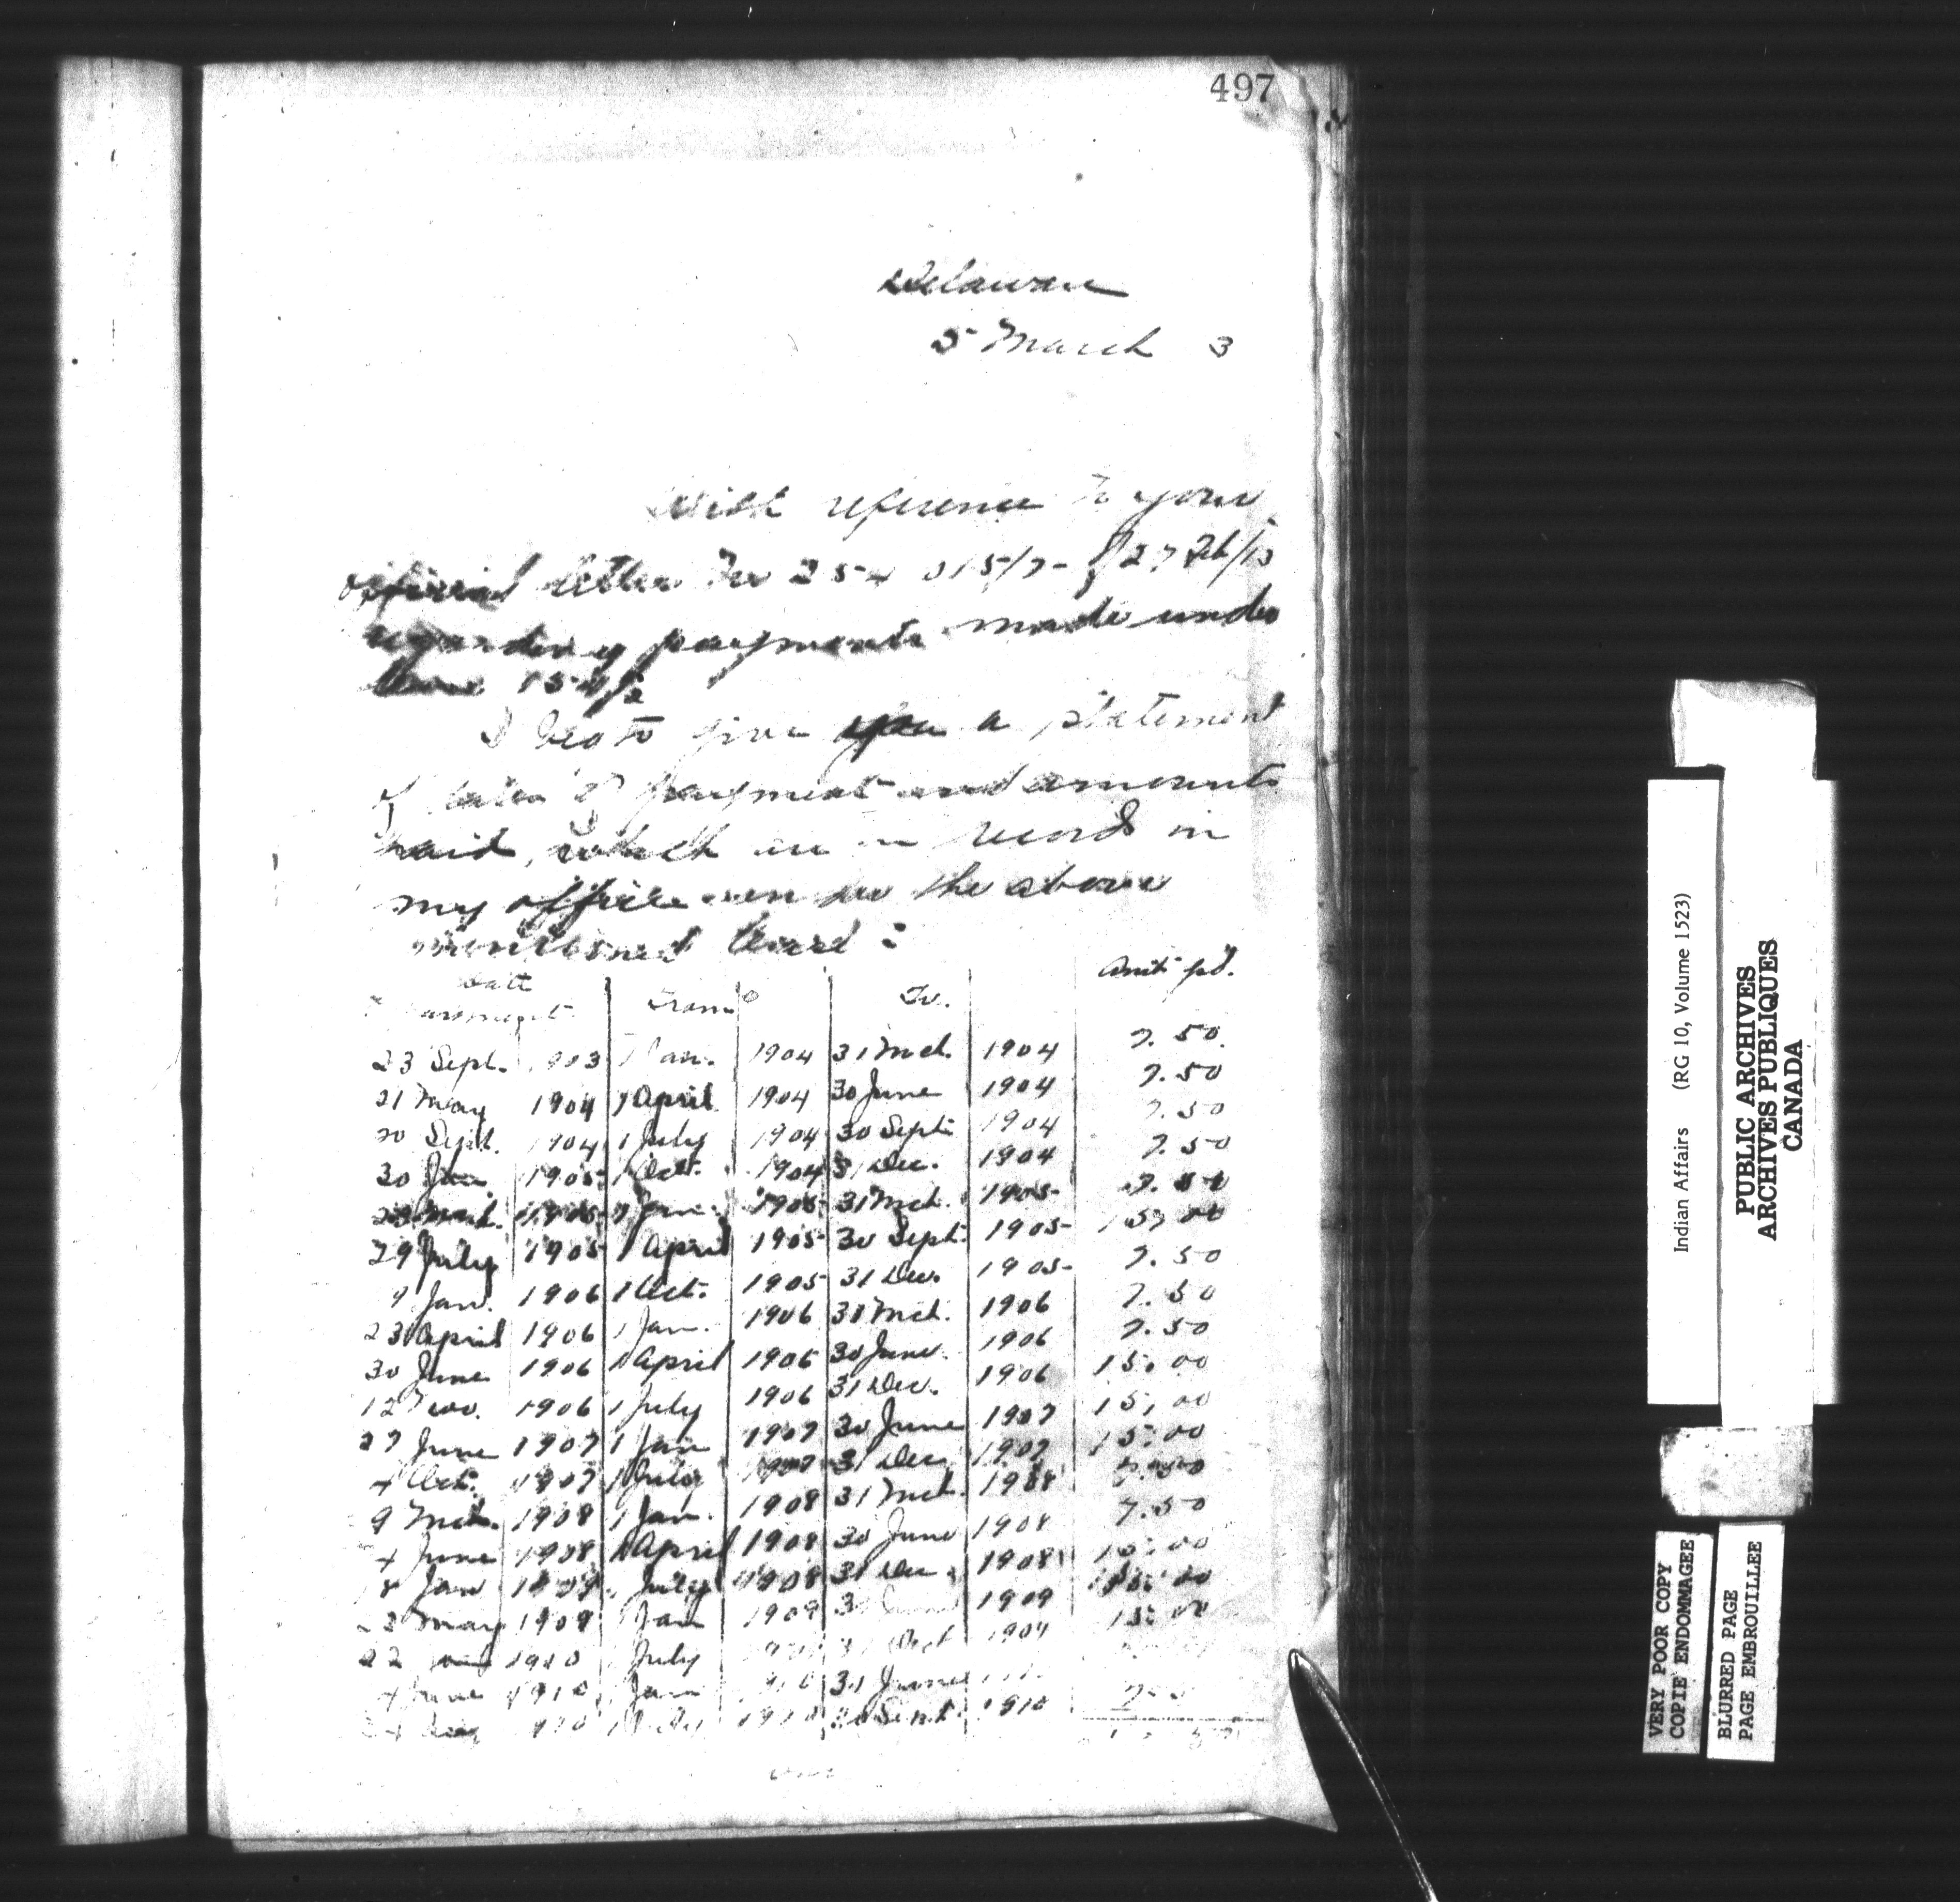 497
Delaware
5 March 3
With reference to your
official letter No 254 015/7- of 27 Feb/13
regarding payments made under
lease
I beg to give you a statement
of dates of payment and amounts
paid, which are on record in
my office under the above
mentioned lease :
Date Payment From To. Amt. pd.
23 Sept. 1903 1 Jan. 1904 31 Mch. 1904 7.50.
21 May 1904 1 April 1904 30 June 1904 7.50
20 Sept. 1904 1 July 1904 30 Sept 1904 7.50
30 Jan 1905 1 Oct. 1904 31 Dec. 1904 7.50
1905 1 Jan. 1905 31 Mch. 1905 7.50
29 July 1905 1 April 1905 30 Sept. 1905 15.00
9 Jan. 1906 1 Oct. 1905 31 Dec. 1905 7.50
23 April 1906 1 Jan. 1906 31 Mch. 1906 7.50
30 June 1906 1 April 1906 30 June. 1906 7.50
12 Nov. 1906 1 July 1906 31 Dec. 1906 15.00
27 June 1907 1 Jan 1907 30 June 1907 15.00
4 Oct. 1907 1 July 1907 31 Dec 1907 15.00
9 Mch. 1908 1 Jan. 1908 31 Mch. 1908 7.50
4 June 1908 1 April 1908 30 June 1908 7.50
18 Jan 1909 1 July 1908 31 Dec. 1908 15.00
23 May 1909 1 Jan 1909 1909 15.00
22 1910 1 July 1909 15.00
4 June 1910 1 Jan 1910 31 June
1910 Sept. 1910
Indian Affairs (RG 10, Volume 1523)
PUBLIC ARCHIVES
ARCHIVES PUBLIQUES
CANADA
VERY POOR COPY
COPIE ENDOMMAGEE
BLURRED PAGE
PAGE EMBROUILLEE